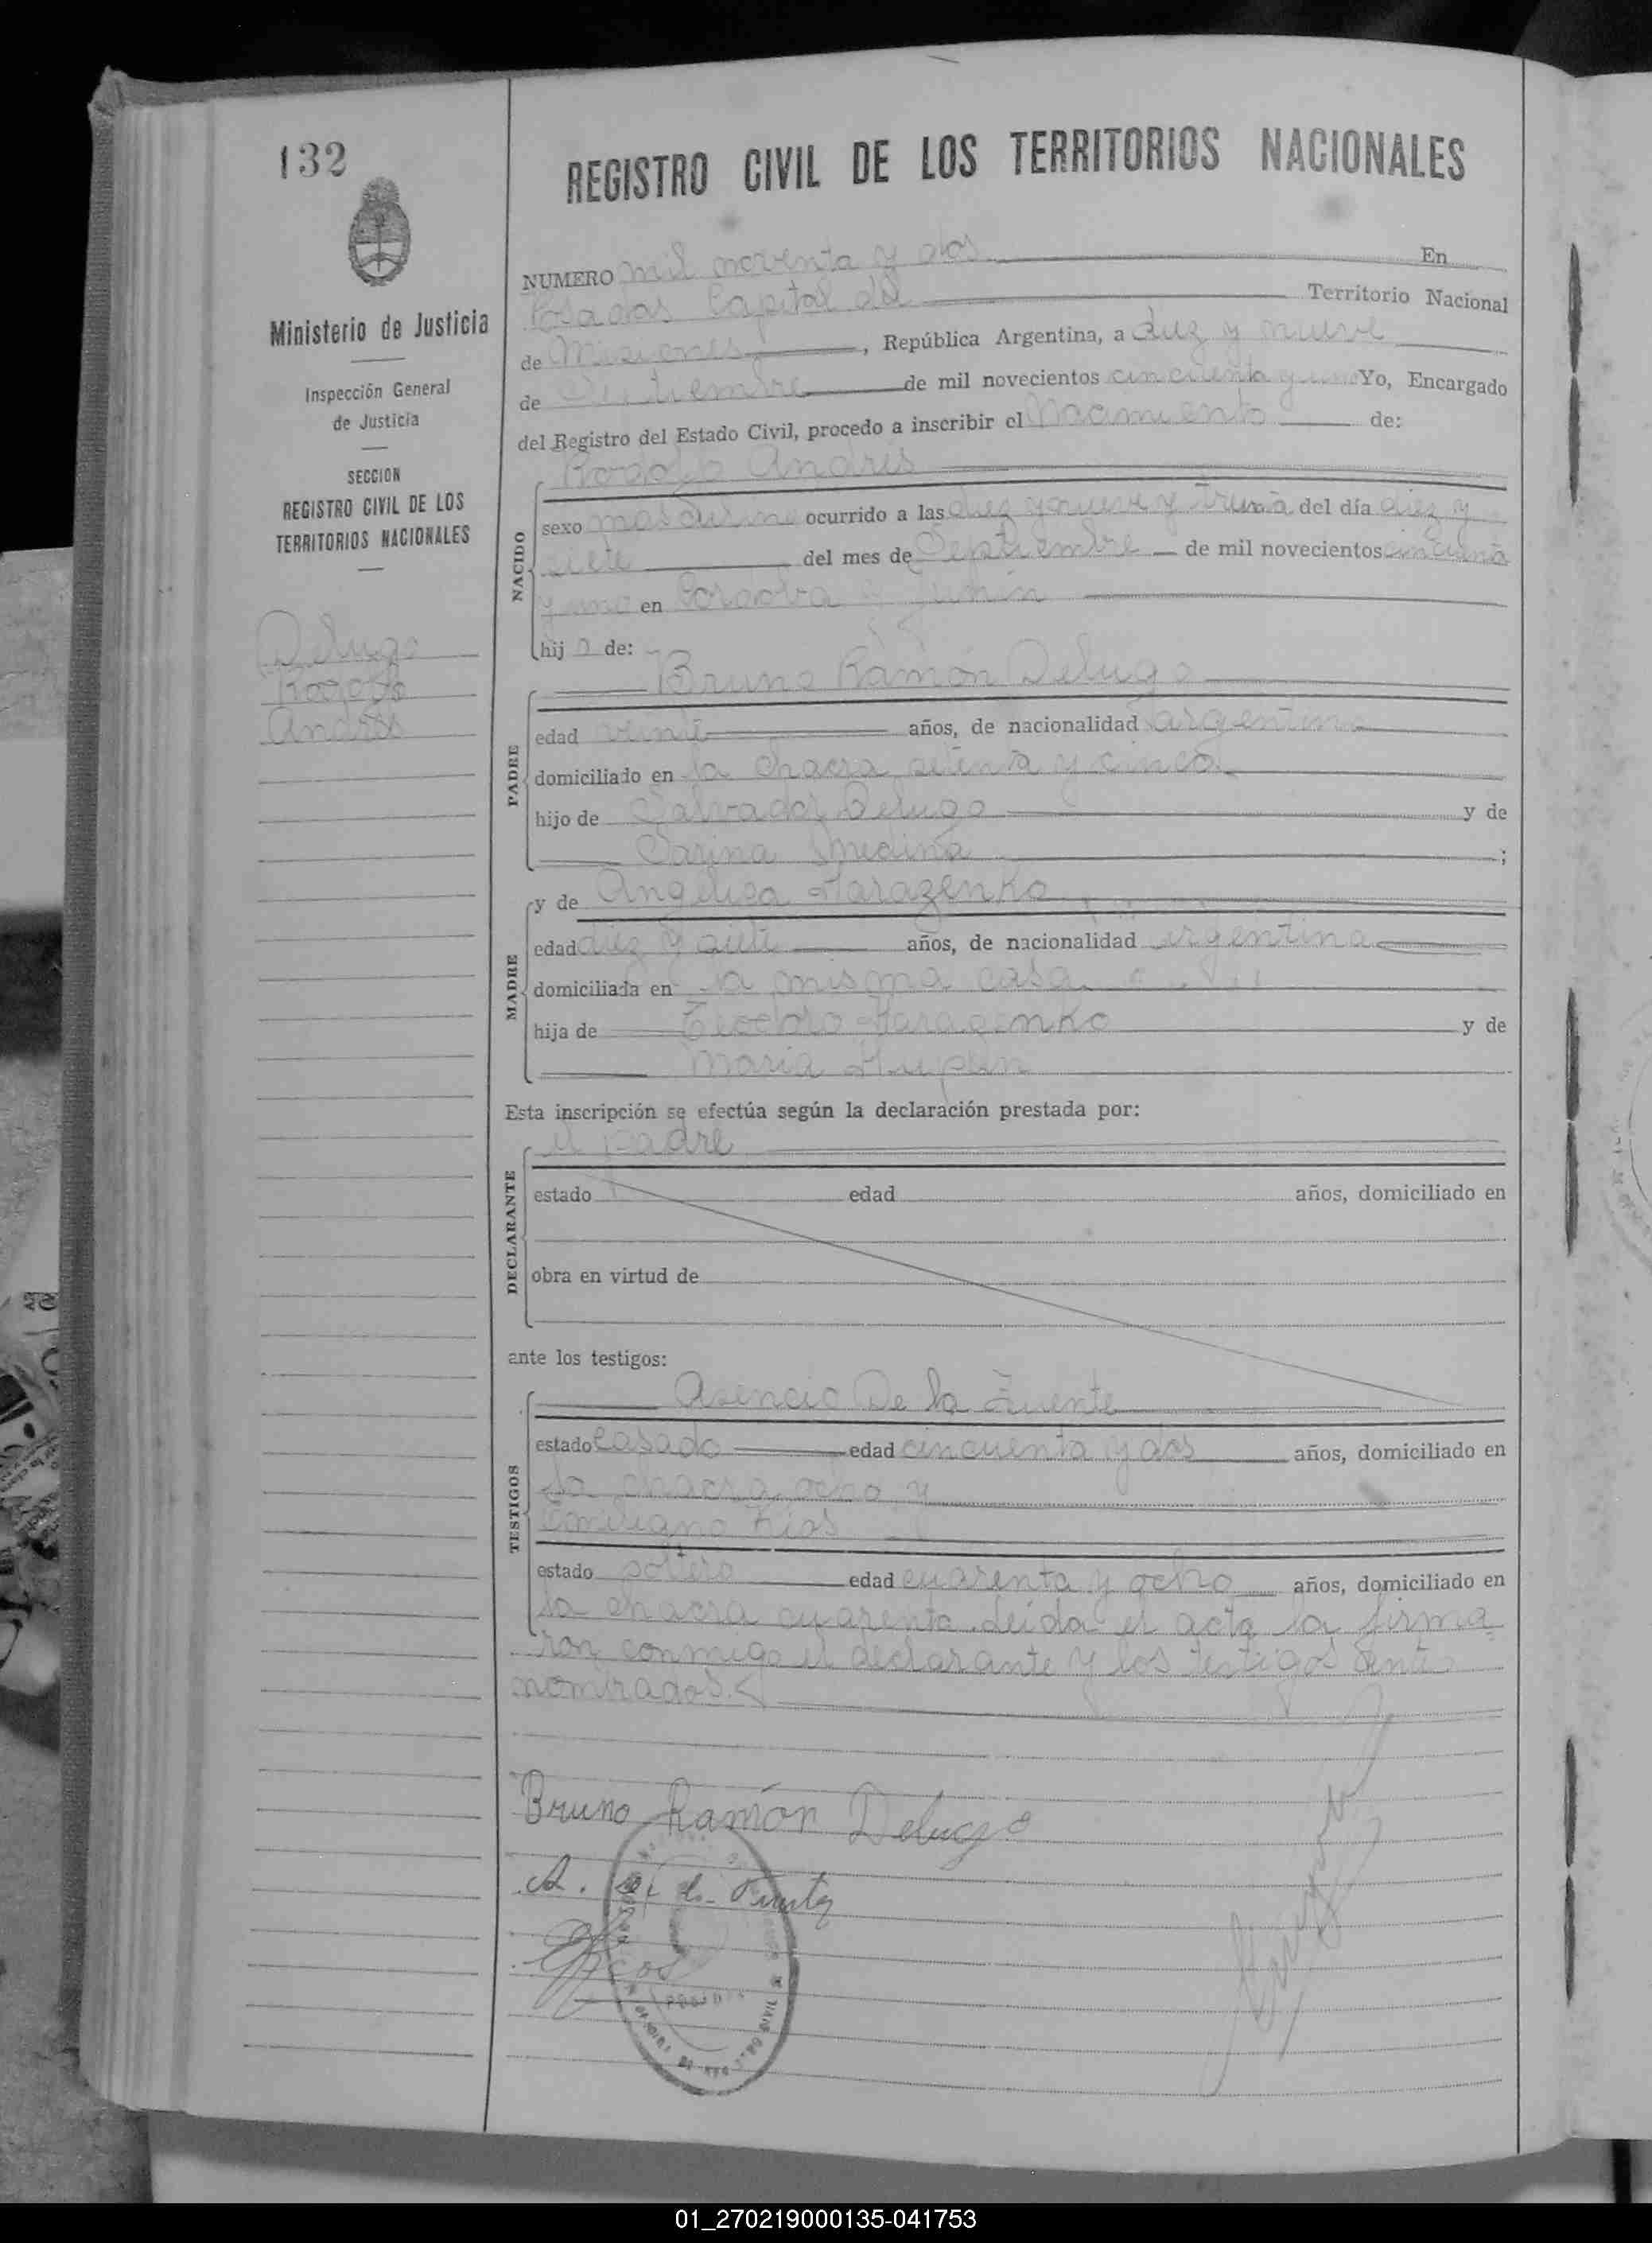 132
Ministerio de Justicia
Inspección General
de Justicia
SECCION
REGISTRO CIVIL DE LOS
TERRITORIOS NACIONALES
Delugo
Rodolfo
Andrés
REGISTRO CIVIL DE LOS TERRITORIOS NACIONALES
NUMERO mil noventa y dos En
Posadas Capital del Territorio Nacional
de Misiones, República Argentina, a diez y nueve
de Setiembre de mil novecientos cincuenta y uno Yo, Encargado
del Registro del Estado Civil, procedo a inscribir el Nacimiento de:
Rodolfo Andrés
NACIDO
sexo masculino ocurrido a las diez y nueve y treinta del día diez y
siete del mes de Septiembre de mil novecientos cincuenta
y uno en Cordoba y Junín
hijo de:
Bruno Ramón Delugo
PADRE
edad veinte años, de nacionalidad argentina
domiciliado en la chacra setenta y cinco
hijo de Salvador Delugo y de
Medina ;
y de Angélica Harazenko
MADRE
edad diez y siete años, de nacionalidad argentina
domiciliada en la misma casa
hija de Teodoro y de
María
Esta inscripción se efectúa según la declaración prestada por:
el padre
DECLARANTE
estado edad años, domiciliado en
obra en virtud de
ante los testigos:
Asencio De la Fuente
TESTIGOS
estado casado edad cincuenta y dos años, domiciliado en
la chacra ocho y
Emiliano Rios
estado soltero edad cuarenta y ocho años, domiciliado en
la chacra cuarenta. Leída el acta la firma
ron conmigo el declarante y los testigos ante
nombrados.
Bruno Ramón Delugo
A. de la Fuente
01_270219000135-041753